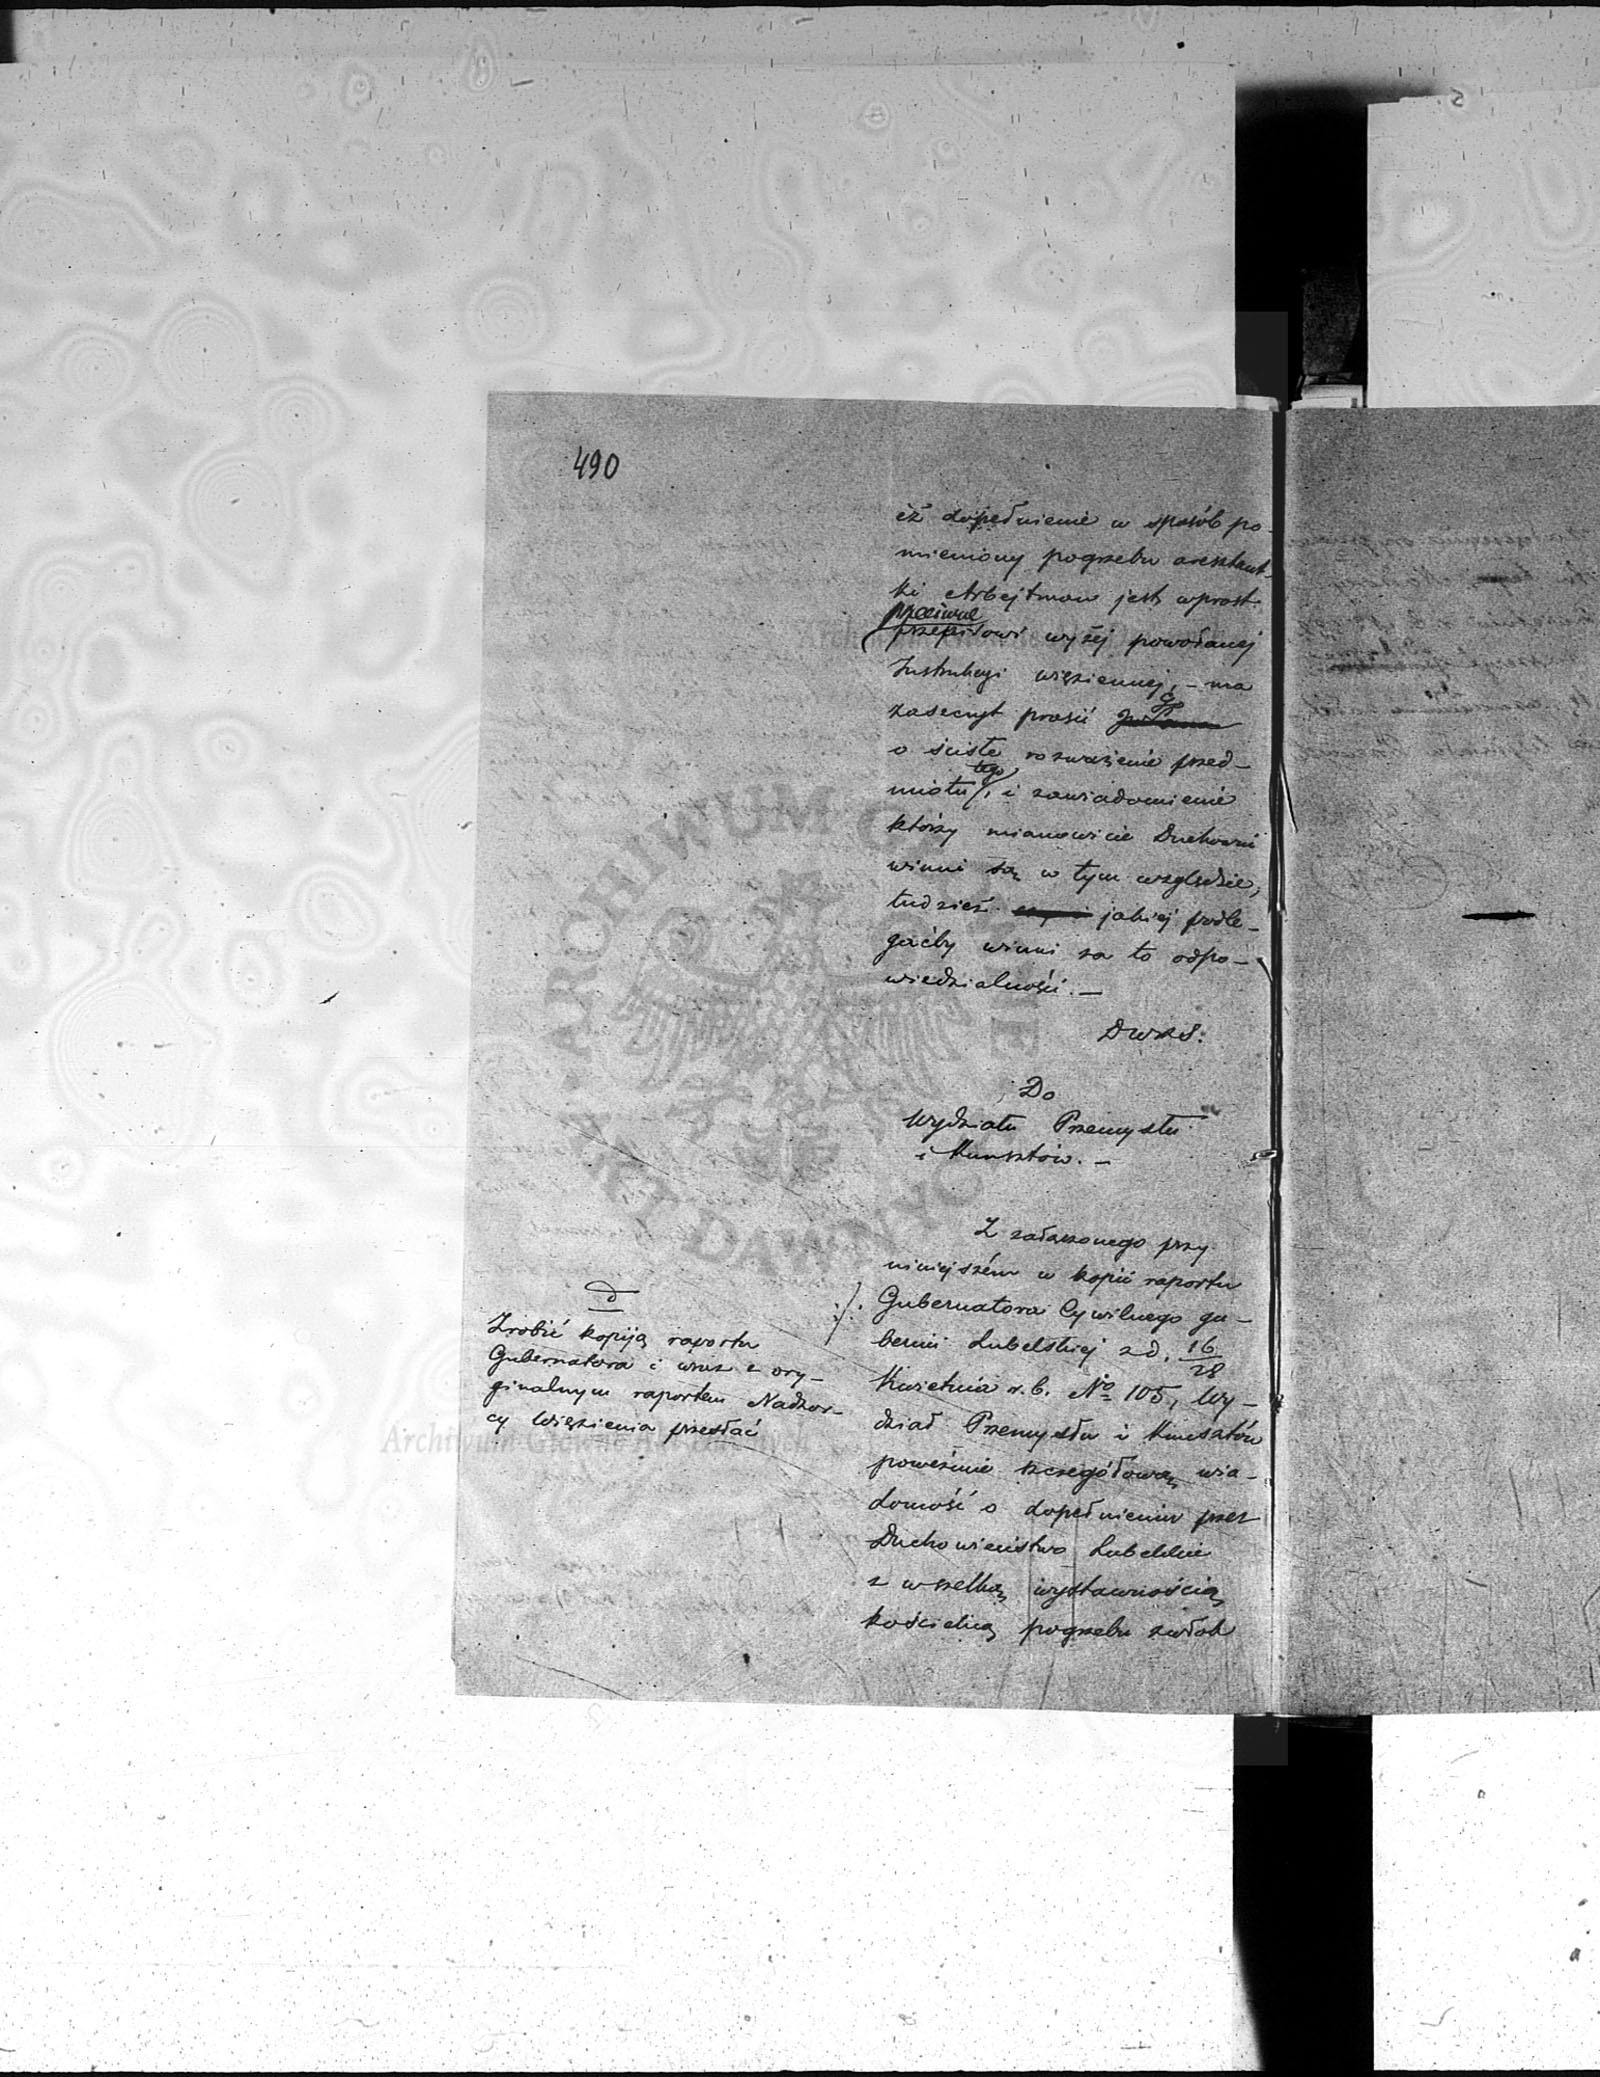 490
iż dopełnienie w sposób po-
mieniony pogrzebu aresztant-
ki Arbejtman jest wprost
przeciwne
przepisowi wyżej powołanej
Instrukcyi więziennej, – ma
zaszczyt prosić
o ścisłe rozważenie przed-
tego
miotu, i zawiadomienie
którzy mianowicie Duchowni
winni są w tym względzie,
tudzież jakiej podle-
gaćby winni za to odpo-
wiedzialności. –
Do
Wydziału Przemysłu
i Kunsztów. –
Z załączonego przy
niniejszém w kopii raportu
Gubernatora Cywilnego gu-
bernii Lubelskiej z d. 16/28
Kwietnia r.b. No 105, Wy-
dział Przemysłu i Kunsztów
poweźmie szczegółową wia-
domość o dopełnieniu przez
Duchowieństwo Lubelskie
z wszelką wystawnością
kościelną pogrzebu zwłok
Zrobić kopiją raportu
Gubernatora i wraz z ory-
ginalnym raportem Nadzor-
cy Więzienia przesłać
ARCHIWUM GŁÓWNE AKT DAWNYCH
Archiwum Główne Akt Dawnych